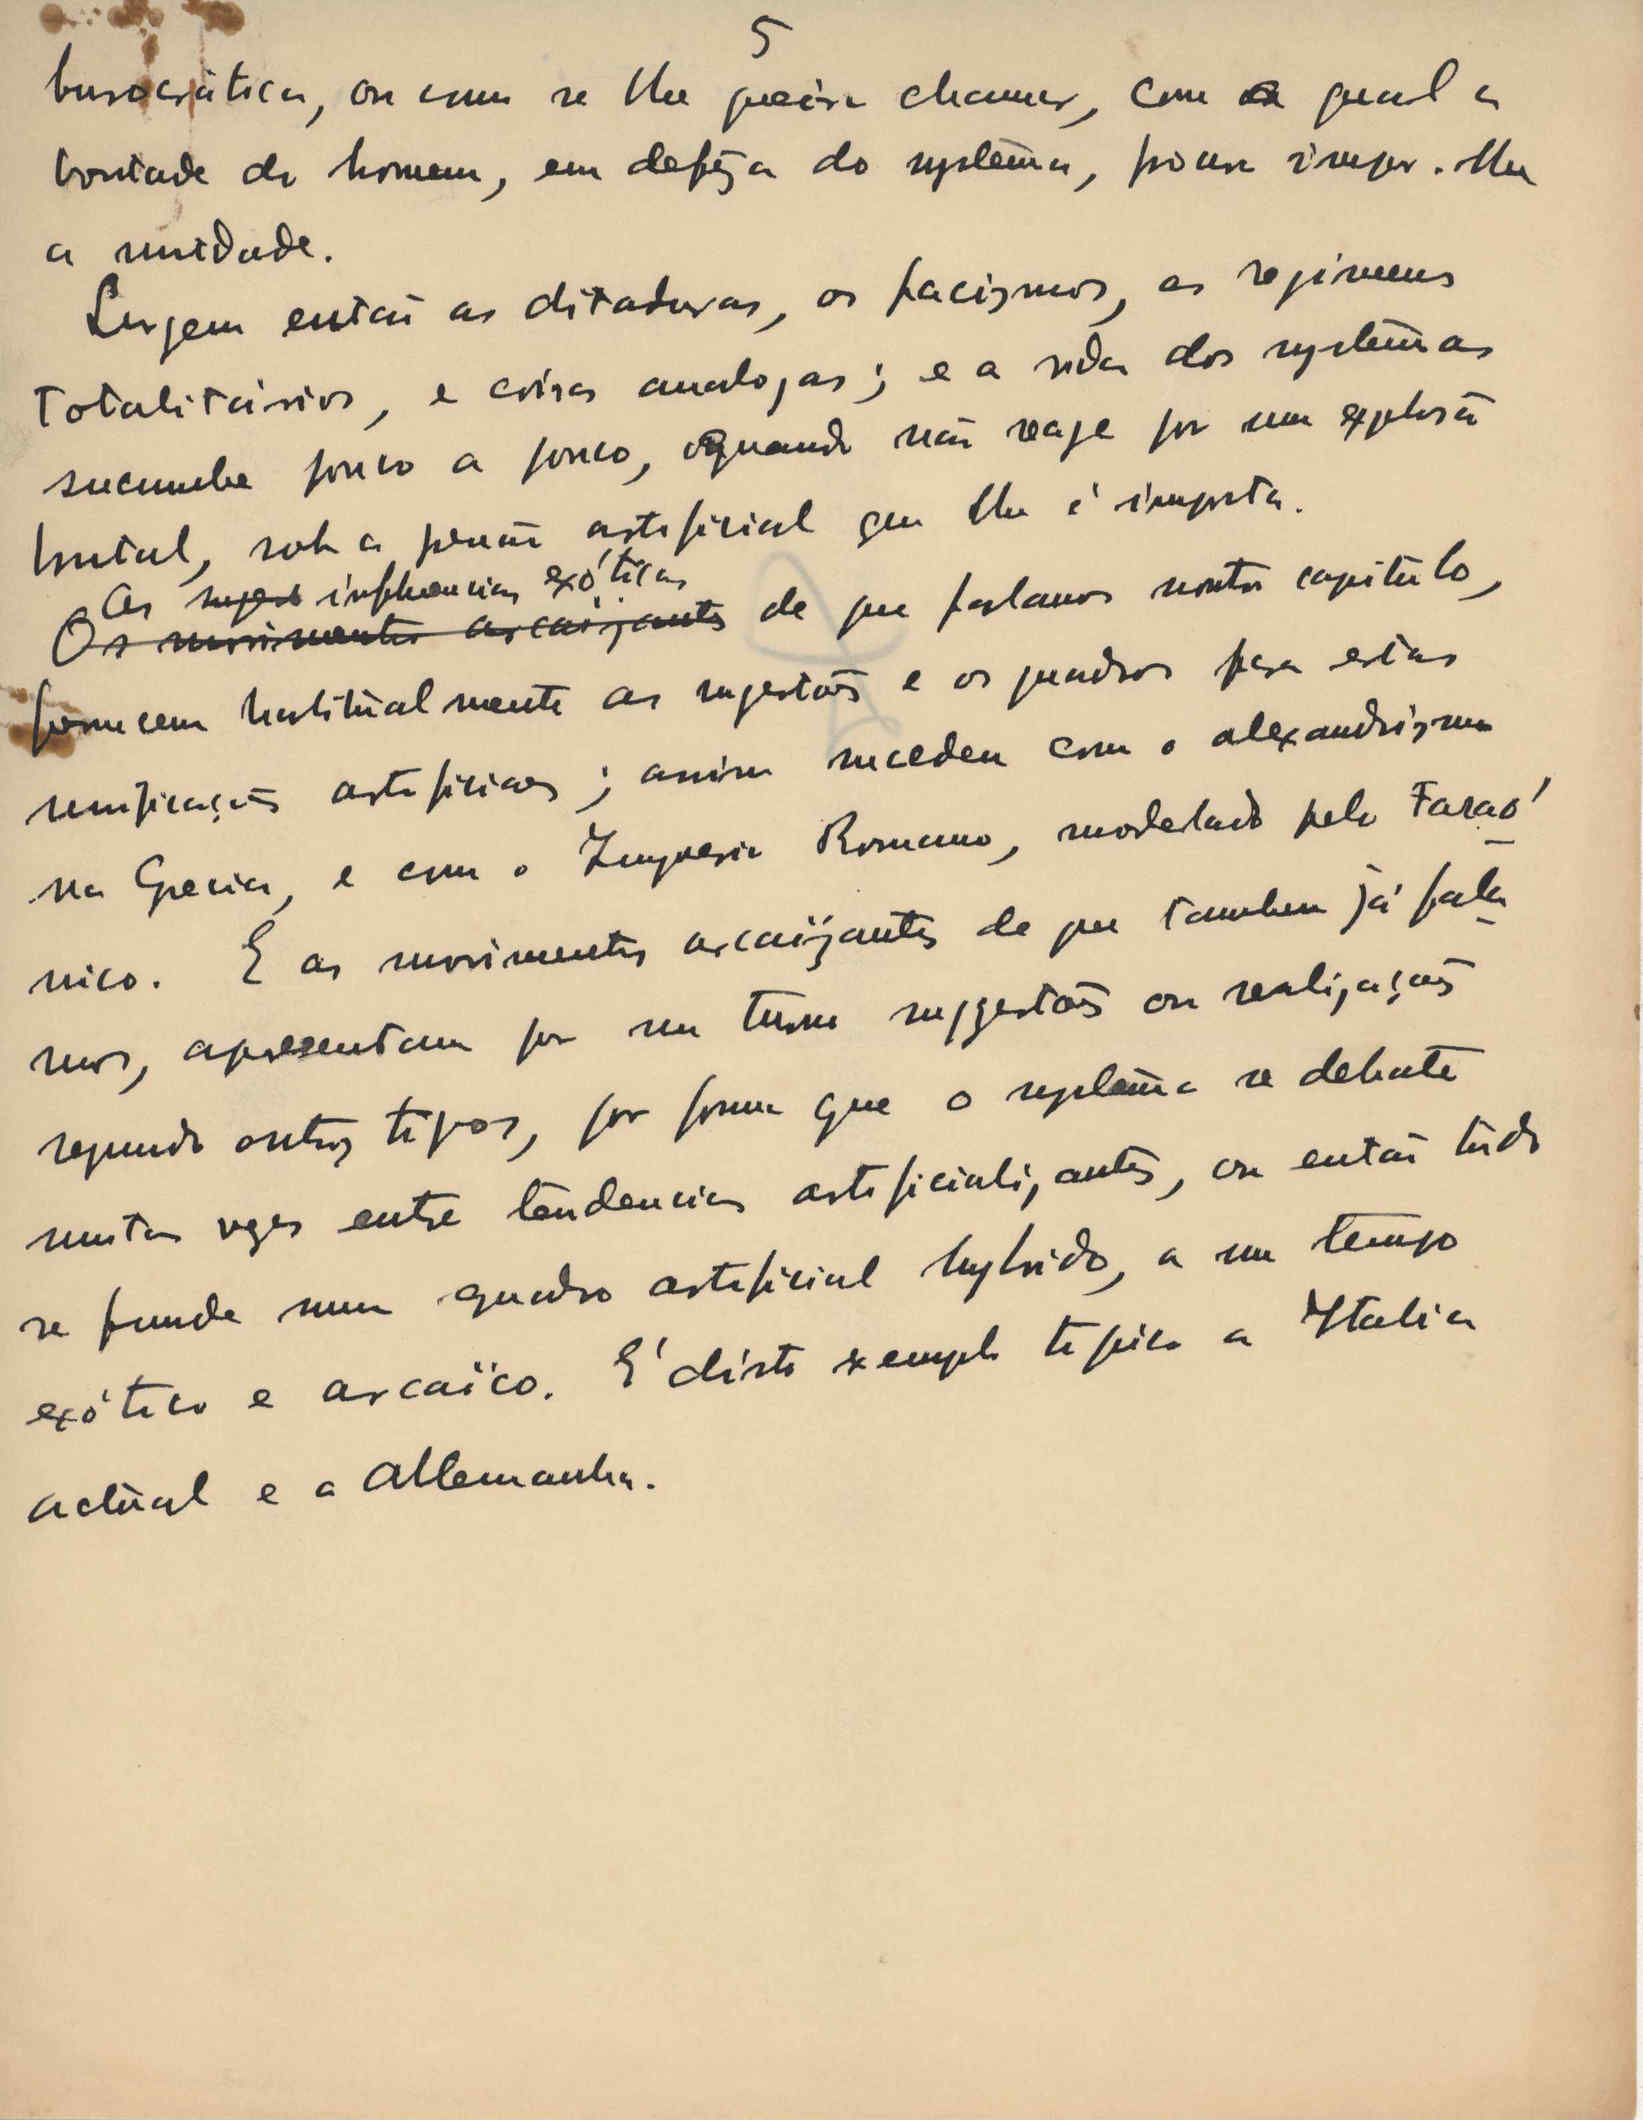 5
burocrática, ou como se lhe queira chamar, com a qual a
vontade do homem, em defeza do systema, procura impor-lhe
a unidade.
Surgem então as ditaduras, os facizmos, os regimens
totalitários, e coisas analogas; e a vida dos systemas
sucumbe pouco a pouco, quando não reage por uma explosão
brutal, sob a pressão artificial que lhe é imposta.
As sugest influencias exóticas
Os movimentos arcaizantes de que falamos noutro capitulo,
fornecem habitualmente as sugestões e os quadros para estas
unificações artificiaes; assim sucedeu com o alexandrizmo
na Grecia, e com o Imperio Romano, modelado pelo Faraó
nico. E os movimentos arcaïzantes de que tambem já fala
mos, apresentam por seu turno suggestões ou realizações
segundo outros tipos, por forma que o systema se debate
muitas vezes entre tendencias artificializantes, ou então tudo
se funde num quadro artificial hybrido, a um tempo
exótico e arcaïco. É disto exemplo tipico a Italia
actual e a Allemanha.